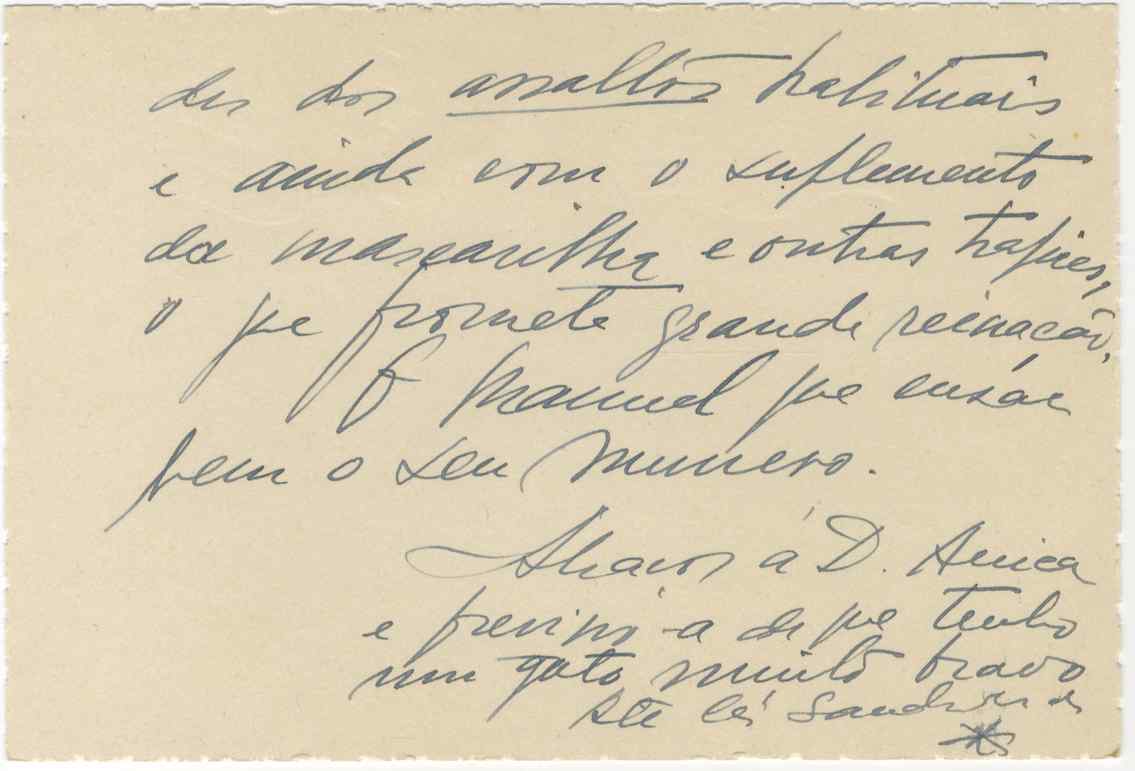 des dos assaltos habituais
e ainda com o suplemento
da mascarilha e outras trapices,
o que promete grande reinação.
O Manuel que ensáie
bem o seu numero.
Abraços á D. Anica
e previno-a de que tenho
um gato muito bravo
Até lá Saudades de